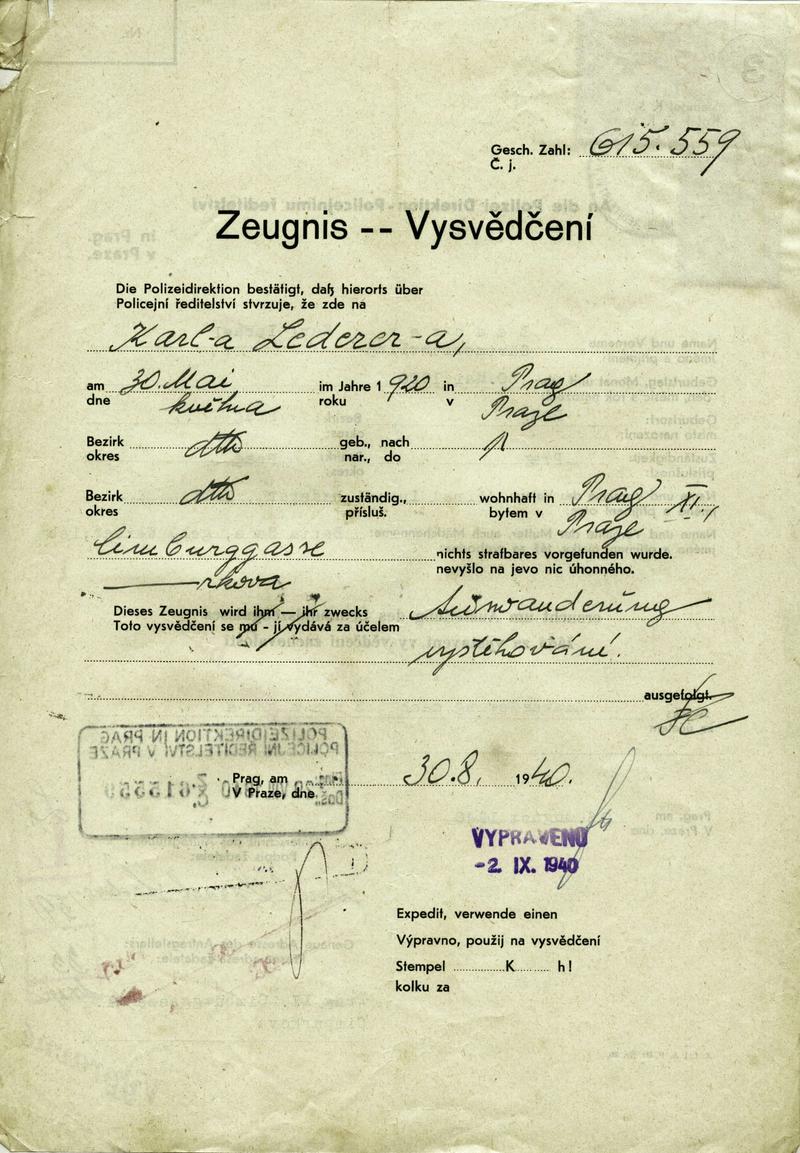 Gesch. Zahl: 615.559
Č. j.
Zeugnis -- Vysvědčení
Die Polizeidirektion bestätigt, daß hierorts über
Policejní ředitelství stvrzuje, že zde na
Karl-a Lederer-a,
am 30. Mai im Jahre 1920 in Prag
dne května roku v Praze
Bezirk dtto geb., nach
okres nar., do
Bezirk dtto zuständig., wohnhaft in Prag XI.,
okres přísluš. bytem v Praze
Cimburggasse nichts strafbares vorgefunden wurde.
rkova nevyšlo na jevo nic úhonného.
Dieses Zeugnis wird ihm — ihr zwecks Auswanderung
Toto vysvědčení se mu - jí vydává za účelem
vystěhování.
ausgefolgt.
POLIZEIDIREKTION IN PRAG
POLICEJNÍ ŘEDITELSTVÍ V PRAZE
Prag, am 30.8. 1940.
V Praze, dne
VYPRAVENO
-2. IX. 1940
Expedit, verwende einen
Výpravno, použij na vysvědčení
Stempel K h!
kolku za